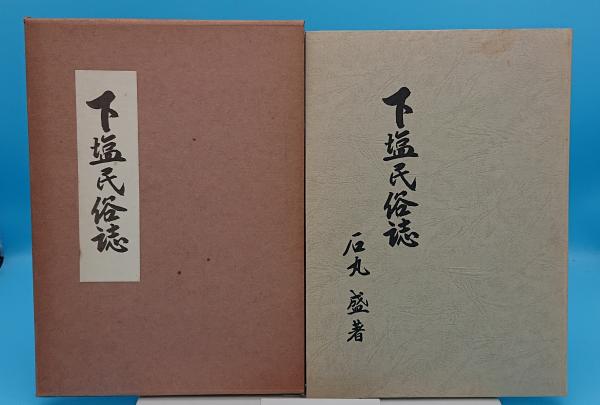 下塩民俗誌
下塩民俗誌
石丸 盛著